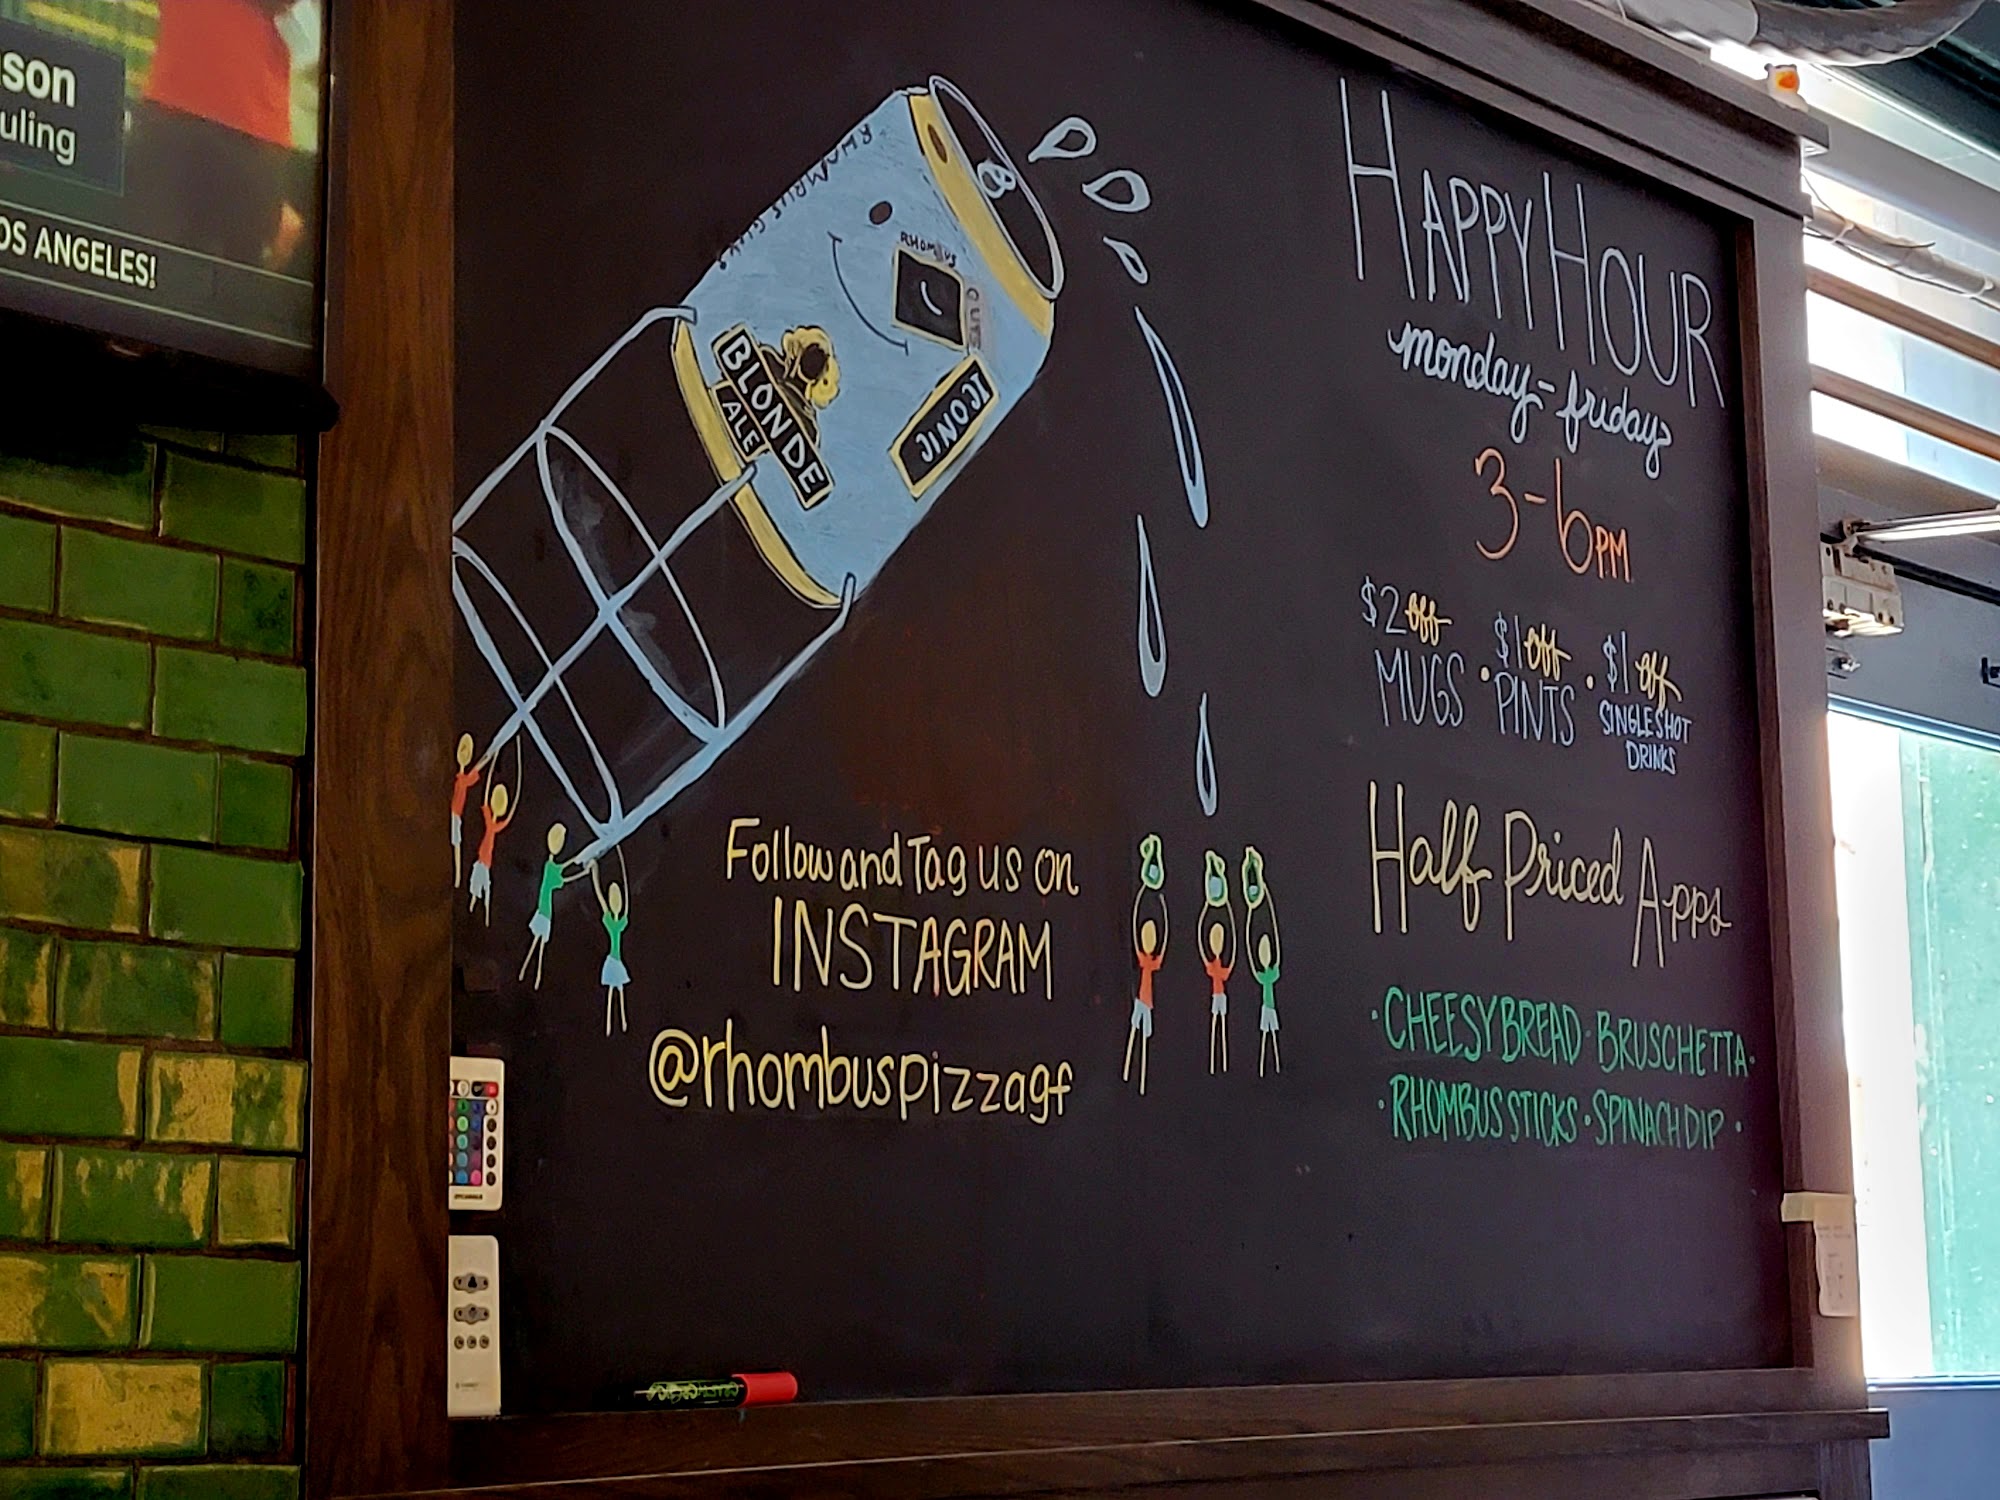 son
uling
OS ANGELES!
RHOMBUS GUYS
B
RHOMBUS
GUYS
BLONDE
ALE
HAPPY HOUR
monday - friday
3-6PM
$2 off MUGS · $1 off PINTS · $1 off SINGLE SHOT DRINKS
Half Priced Apps
· CHEESY BREAD · BRUSCHETTA ·
· RHOMBUS STICKS · SPINACH DIP ·
Follow and Tag us on
INSTAGRAM
@rhombuspizzagf